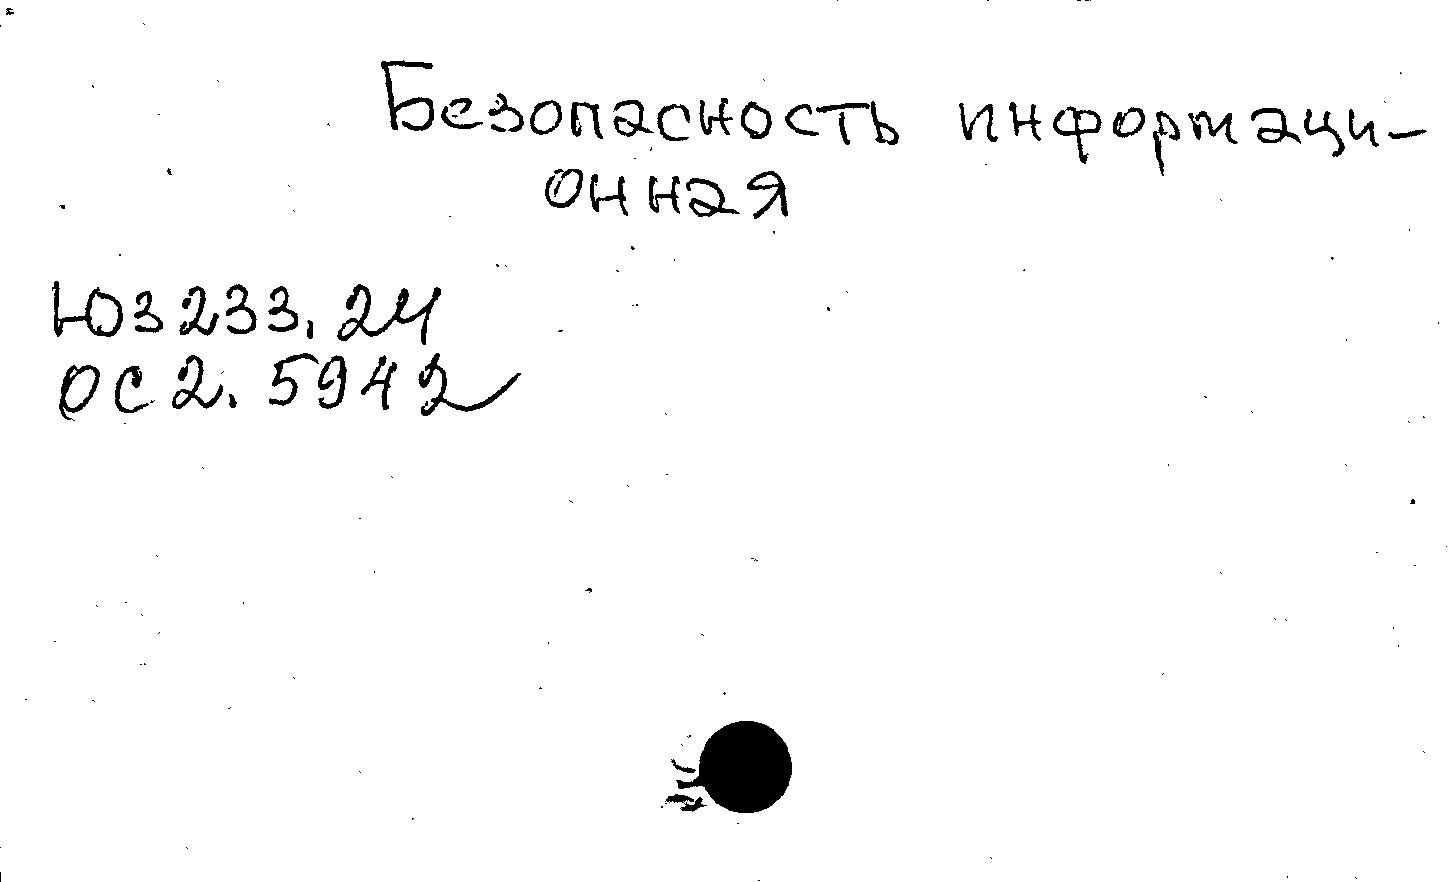 Безопасность информаци-
онная
Ю3233.24
ОС2.5942